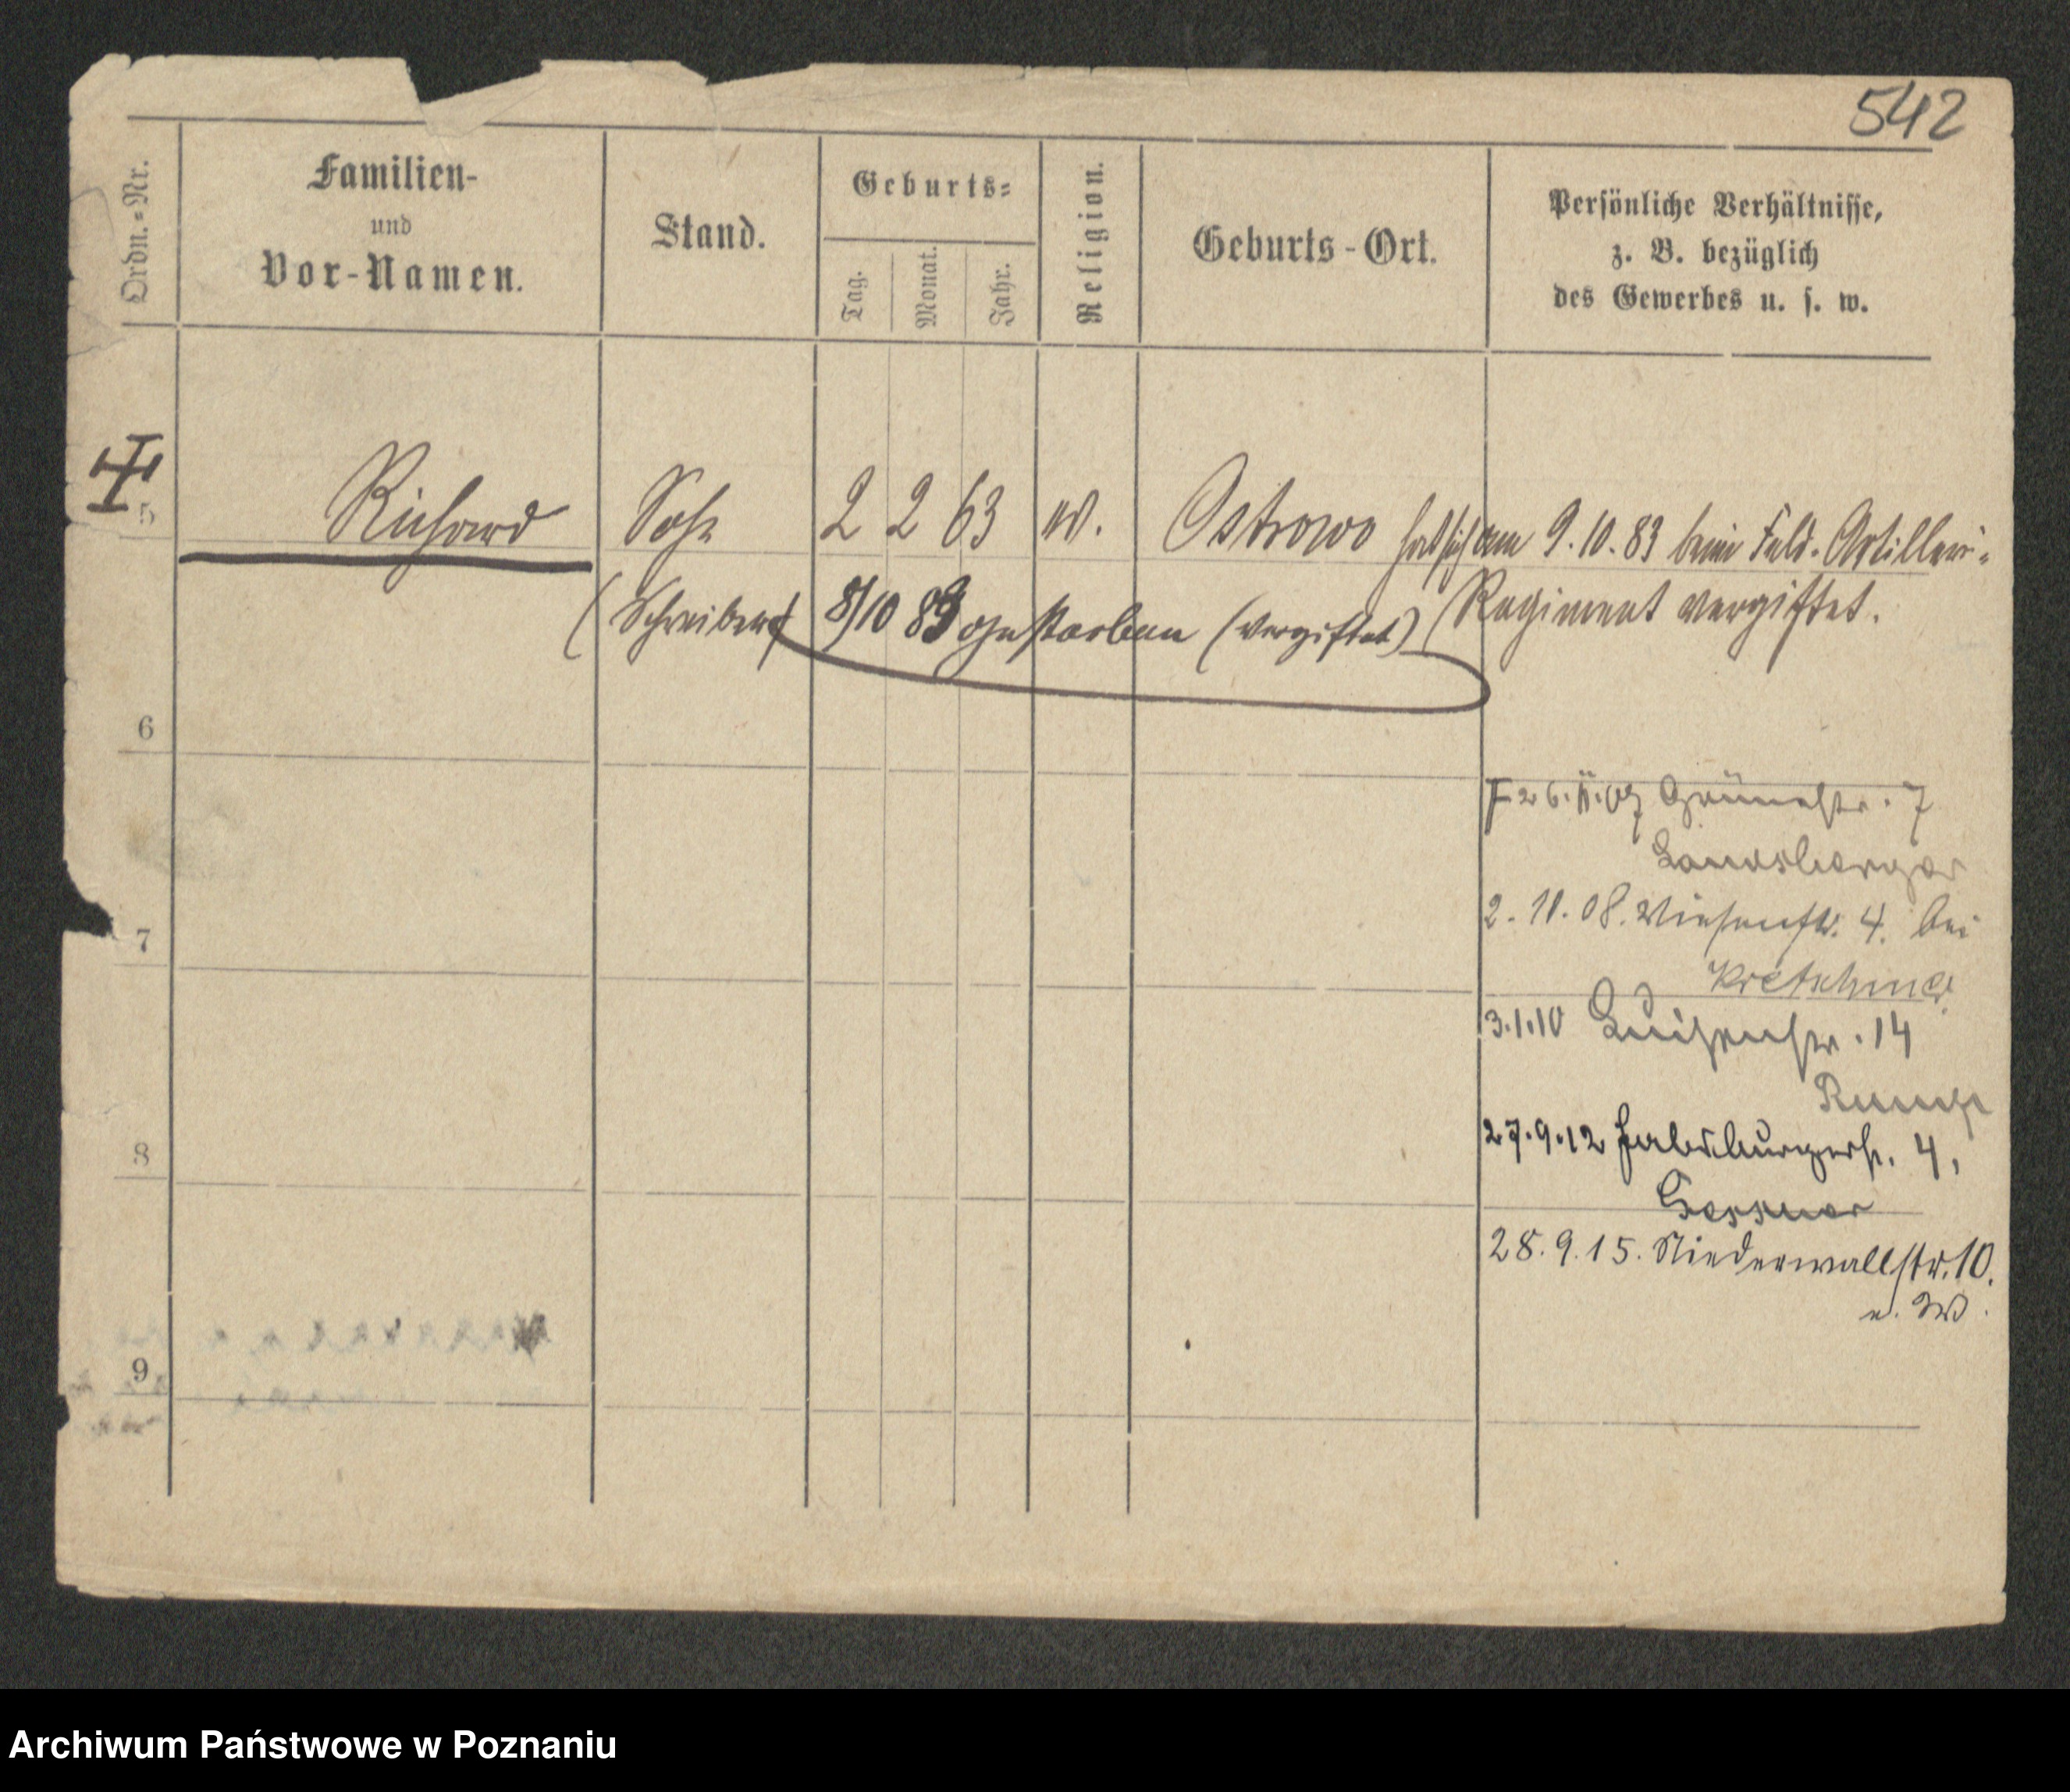 542
Ordn.=Nr.
Familien-
und
Vor-Namen.
Stand.
Geburts=
Tag.
Monat.
Jahr.
Religion.
Geburts-Ort.
Persönliche Verhältnisse,
z. B. bezüglich
des Gewerbes u. s. w.
5 Richard Sohn 2 2 63 Ostrowo hat sich am 9.10.83 beim Feld-Artillerie-
(Schreiber) 8/10 83 gestorben (vergiftet) (Regiment vergiftet.
6
26. Grünestr. 7
Landsberger
7
2. 11. 08. Wiesenstr. 4. bei
Kretschmer
3.1.10 Luisenstr. 14
Runge
8
27.9.12 Habsburgerstr. 4,
Gessner
28.9.15. Niederwallstr. 10.
9
Archiwum Państwowe w Poznaniu